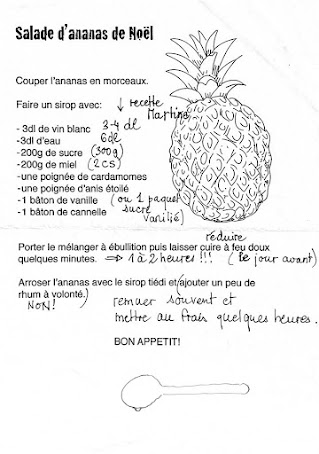 Salade d'ananas de Noël
Couper l'ananas en morceaux.
Faire un sirop avec: ↓ recette Martine
- 3dl de vin blanc 3-4 dl
-3dl d'eau 6dl
-200g de sucre (300g)
-200g de miel (2 CS)
-une poignée de cardamomes
-une poignée d'anis étoilé
-1 bâton de vanille (ou 1 paquet sucre vanillé)
-1 bâton de cannelle
réduire
Porter le mélanger à ébullition puis laisser cuire à feu doux
quelques minutes. ⇒ 1 à 2 heures !!! (le jour avant)
Arroser l'ananas avec le sirop tiédi et (ajouter un peu de
rhum à volonté.) remuer souvent et
NON! mettre au frais quelques heures.
BON APPETIT!